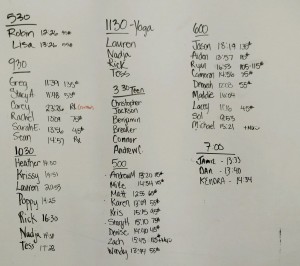 530
Robin 13:26
Lisa 13:26
930
Greg 11:39 135#
Stacy A 11:48 53#
Corey 23:26 Rx
Rachel 13:04 75#
Sarah E. 13:56 45#
Sean 14:57 Rx
1030
Heather 14:00
Krissy 19:51
Lauren 20:53
Poppy 14:25
Rick 16:30
Nadja
Tess 17:28
1130 - Yoga
Lauren
Nadja
Rick
Tess
3:30 Teen
Christopher
Jackson
Benjamin
Breaker
Connor
Andrew C.
500
Andrew M 13:20
Mike 14:34
Matt 12:55 65#
Karen 17:09 55#
Kris 15:15
Stacy H 15:30 73#
Denise 14:40 45#
Zach 15:43
Wendy 17:49 55#
600
Jason 18:14 135#
Aidan 10:57
Ryan 16:53 105-115#
Cameron 14:56 35#
Dannah 11:03 55#
Maddie 14:04
Larry 17:16 45#
Sol 9:53
Michael 15:21
7:00
JAMIE - 13:33
DAN - 13:40
KENDRA - 14:34